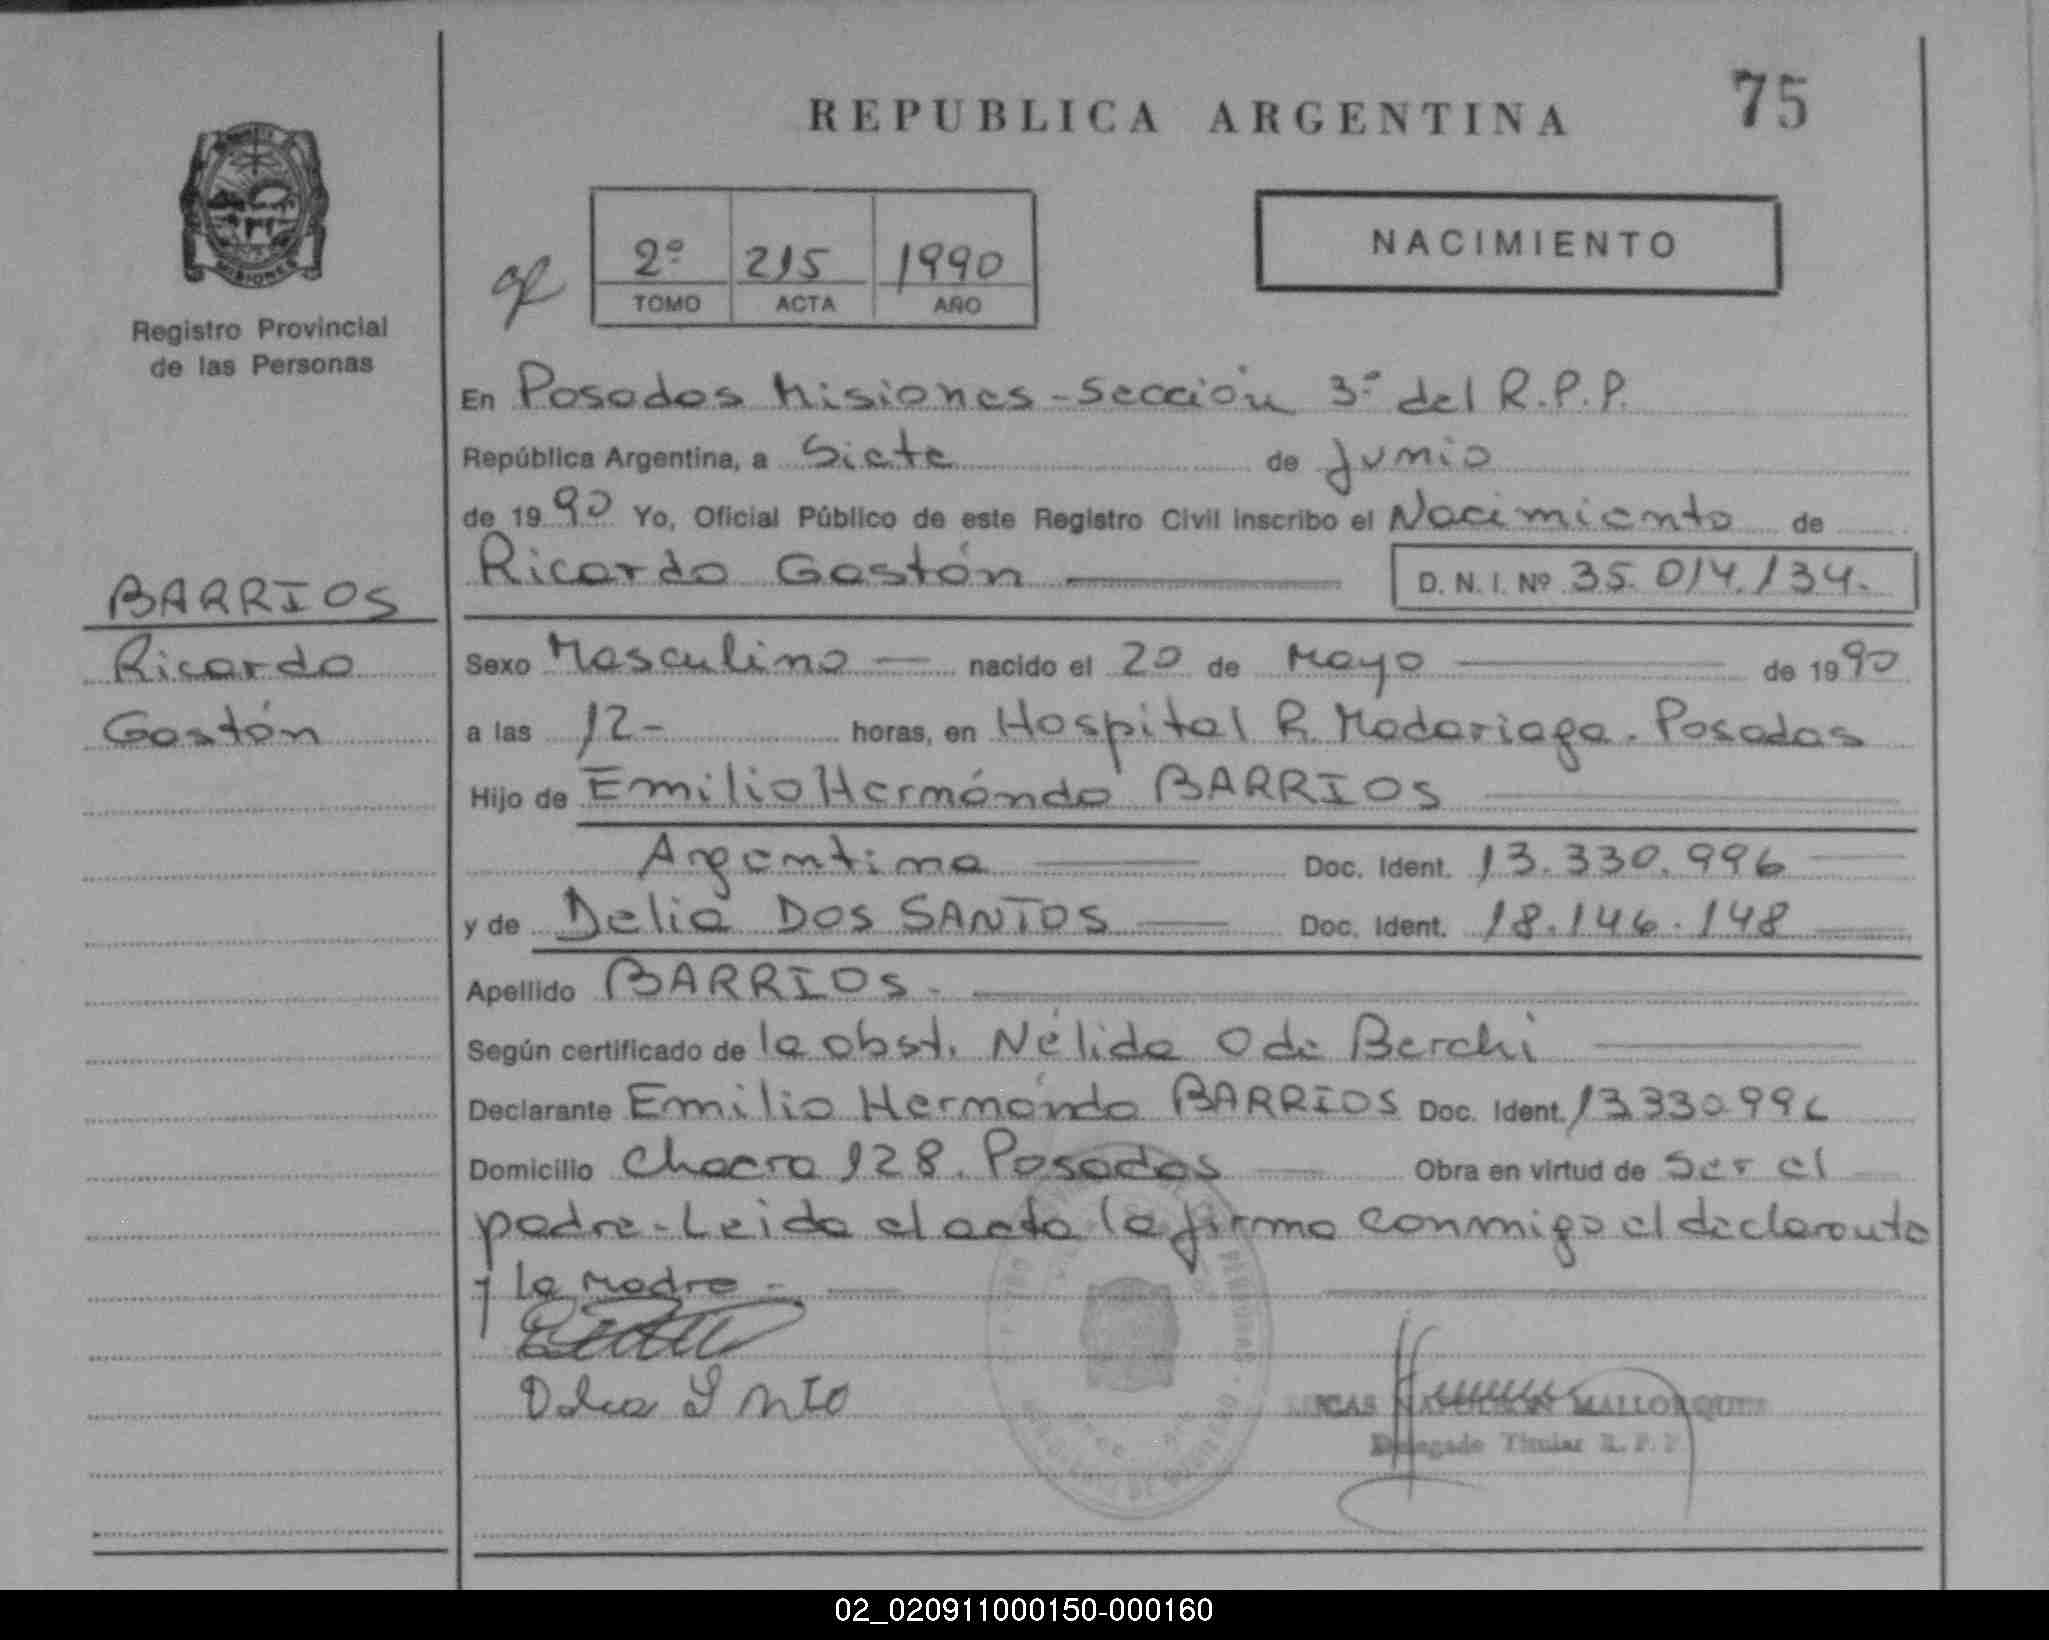 REPUBLICA ARGENTINA
75
MISIONES
Registro Provincial
de las Personas
2º 215 1990
TOMO ACTA AÑO
NACIMIENTO
En Posadas Misiones - Sección 3ª del R.P.P.
República Argentina, a Siete de Junio
de 1990 Yo, Oficial Público de este Registro Civil inscribo el Nacimiento de
Ricardo Gastón D.N.I. Nº 35.014.134.
BARRIOS
Ricardo
Gastón
Sexo Masculino nacido el 20 de Mayo de 1990
a las 12- horas, en Hospital R. Madariaga. Posadas
Hijo de Emilio Hernándo BARRIOS
Argentina Doc. Ident. 13.330.996
y de Delia DOS SANTOS Doc. Ident. 18.146.148
Apellido BARRIOS.
Según certificado de la obst. Nélida O de Berchi
Declarante Emilio Hernándo BARRIOS Doc. Ident. 13330996
Domicilio Chacra 128. Posadas Obra en virtud de Ser el
padre - Leida el acta la firma conmigo el declarante
y la Madre -
LUCAS MALLORQUIN
Delegado Titular R. P. P.
02_020911000150-000160